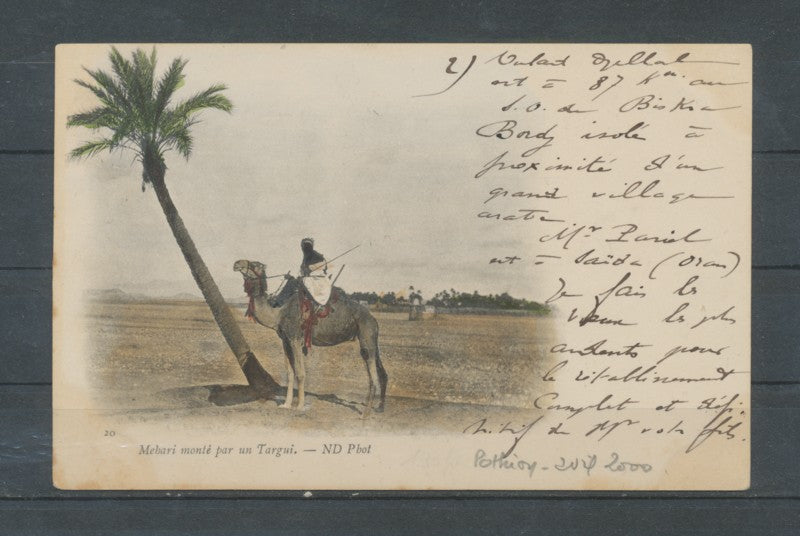 2) Oulad Djellal
est à 87 Km au
S.O. de Biskra
Bordj isolé à
proximité d'un
grand village
arabe
Mr Pariel
est à Saïda (Oran)
Je fais les
vœux les plus
ardents pour
le rétablissement
Complet et défi-
nitif de Mr votre fils.
20
Mehari monté par un Targui. — ND Phot
2000